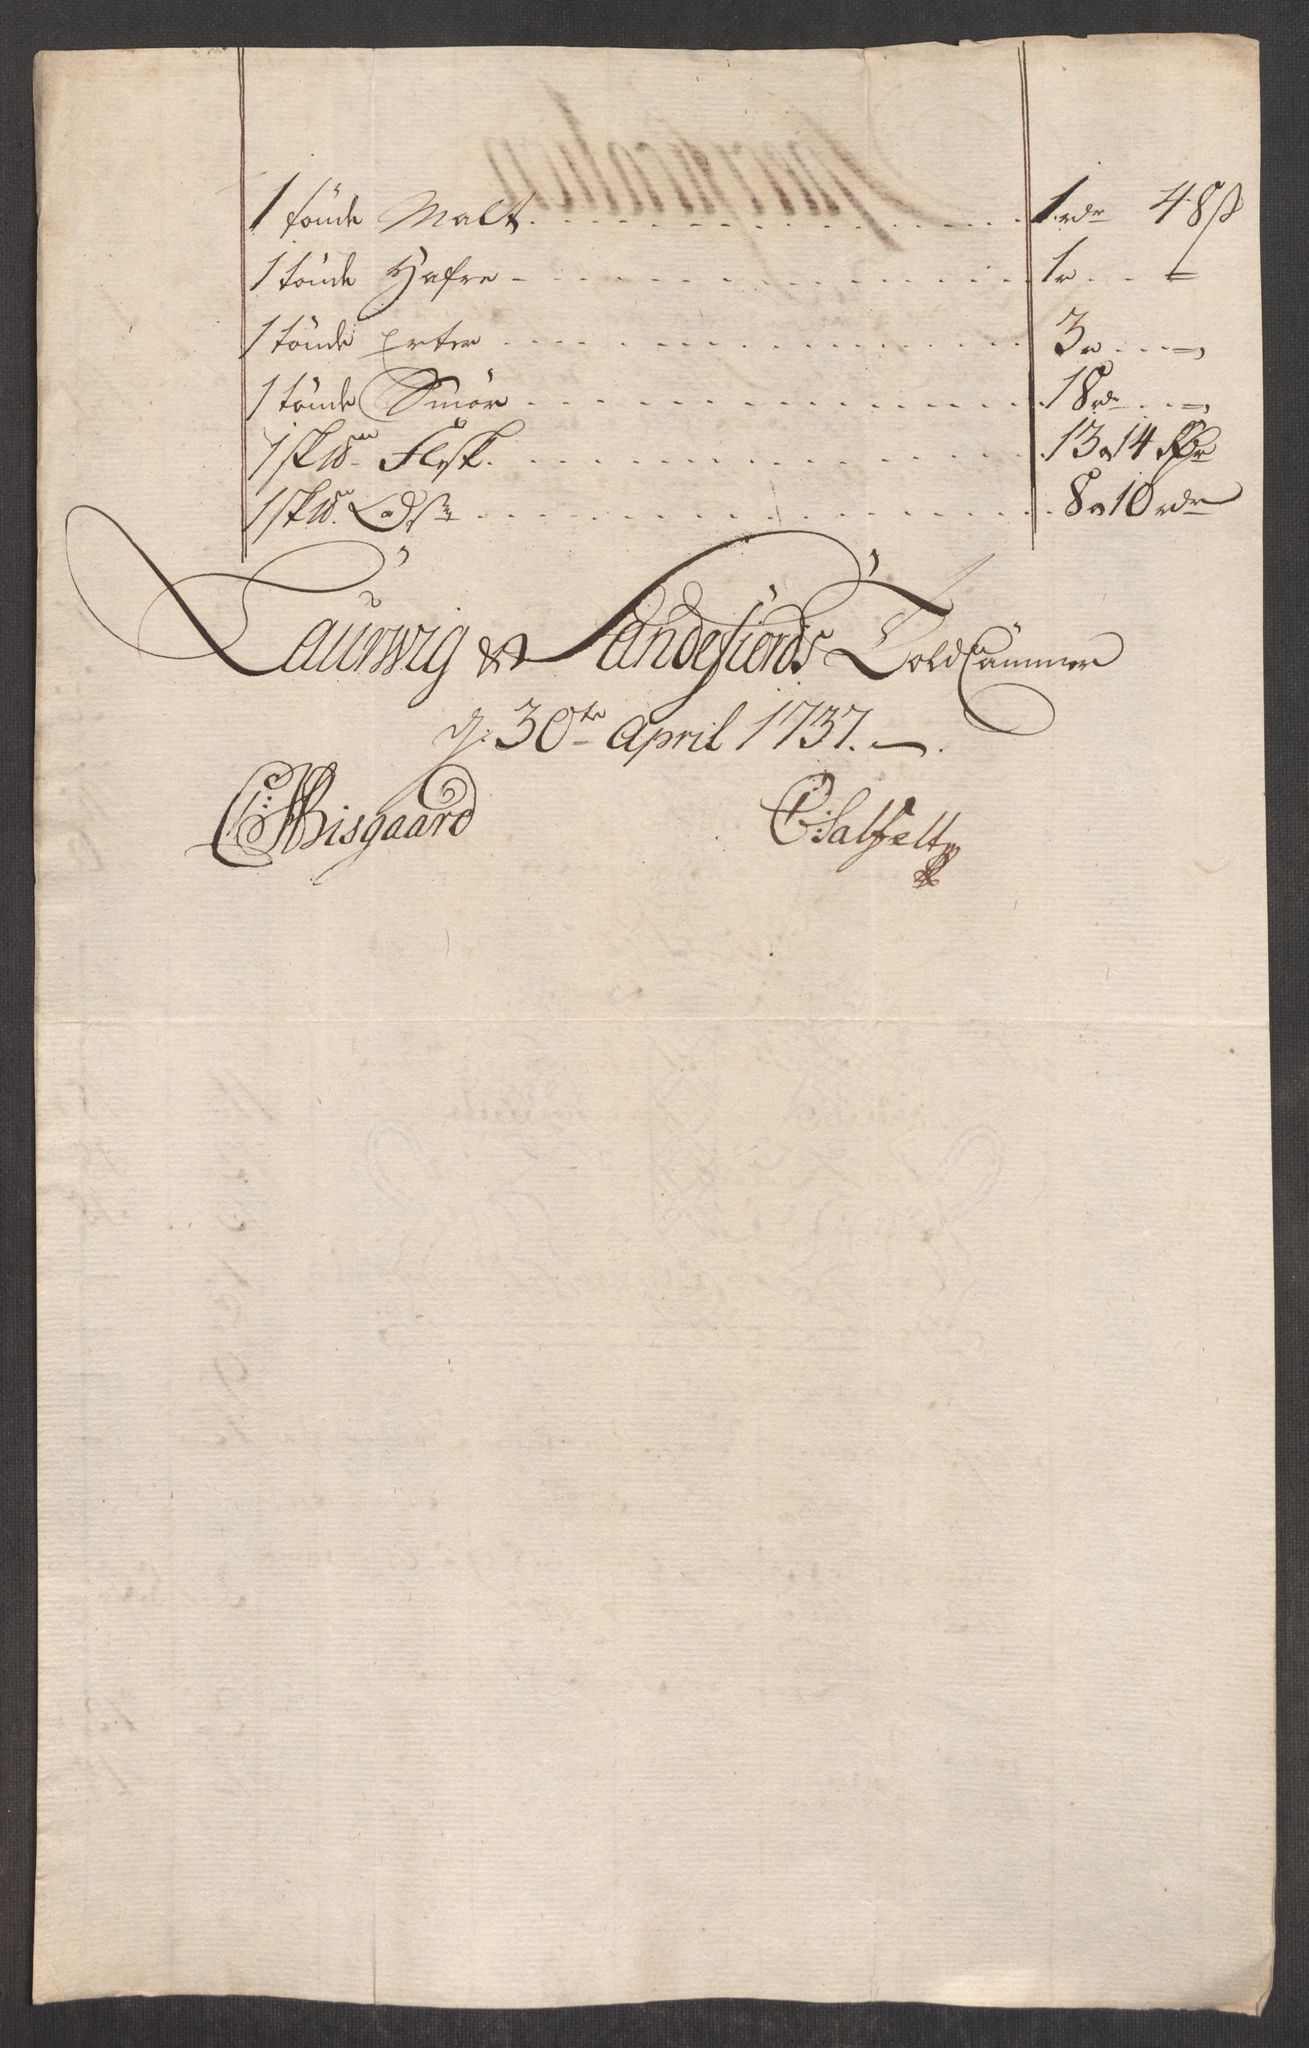 1 tönde Malt . . . . . 1 rdr 48 ß
1 tönde Hafre . . . . . 1 r . . =
1 tönde Erter . . . . . 3 r . . =
1 tönde Smör . . . . . 18 rdr . . =
1 sk℔ Flesk . . . . . 13 a 14
1 sk℔ Ost . . . . . 8 a 10 rdr
Laurwig & Sandefiords Told Cammer
d: 30te April 1737.
Bisgaard
C Salfelt